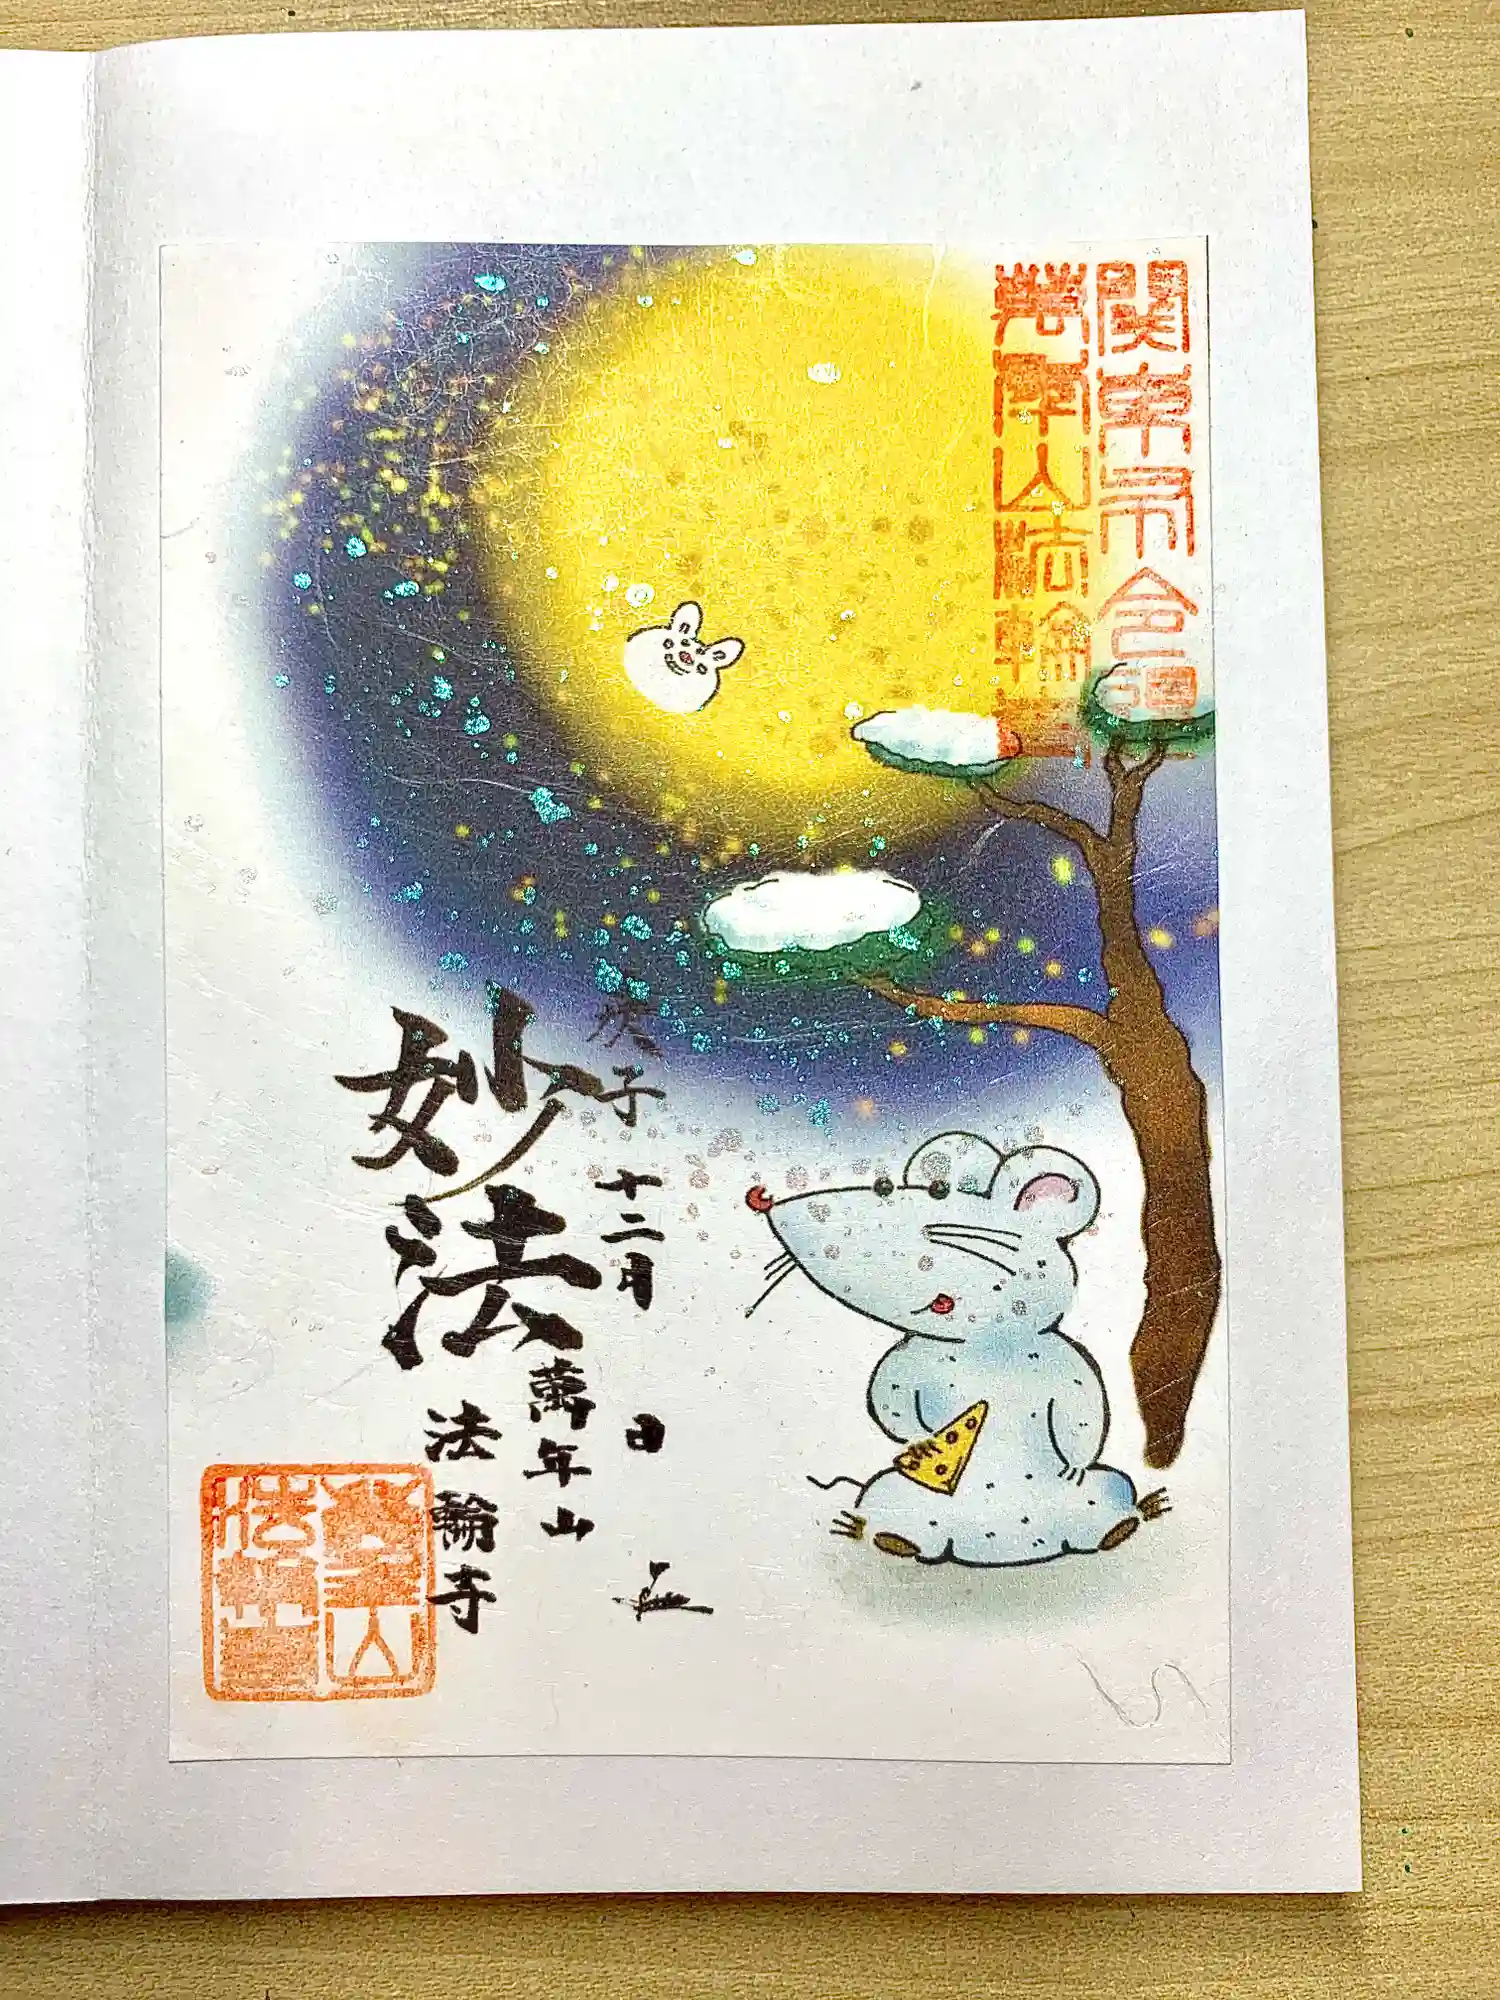 萬年山法輪寺
庚子十二月 日
妙法
萬年山
法輪寺
萬年山
法輪寺